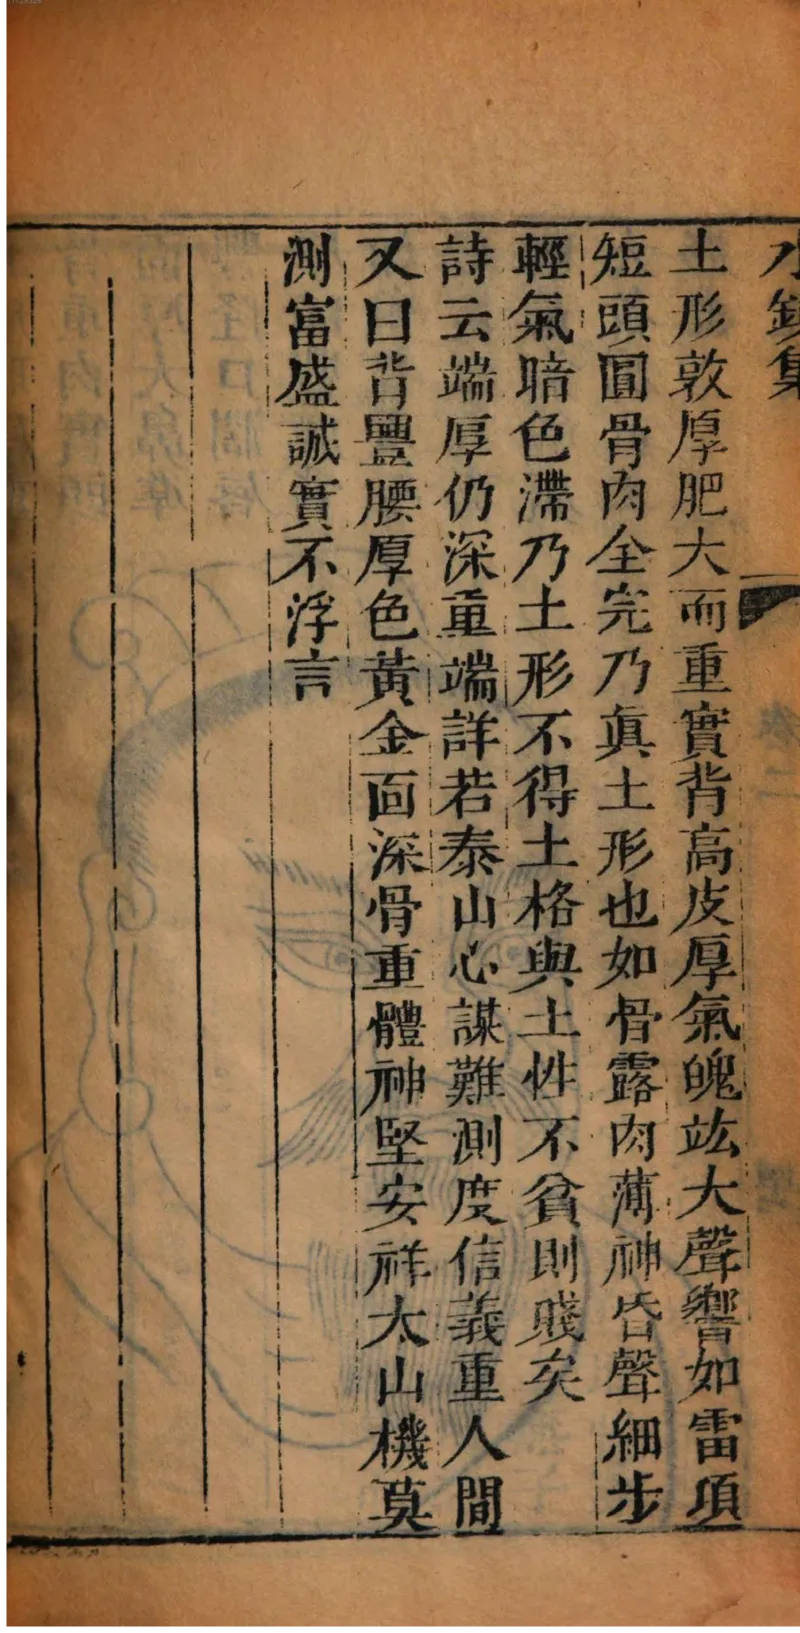 水鏡集
土形敦厚肥大而重實背高皮厚氣魄竑大聲響如雷項
短頭圓骨肉全完乃眞土形也如骨露肉薄神昏聲細步
輕氣暗色滯乃土形不得土格與土性不貧則賤矣
詩云端厚仍深重端詳若泰山心謀難測度信義重人間
又曰背豐腰厚色黃金面深骨重體神堅安祥太山機莫
測富盛誠實不浮言